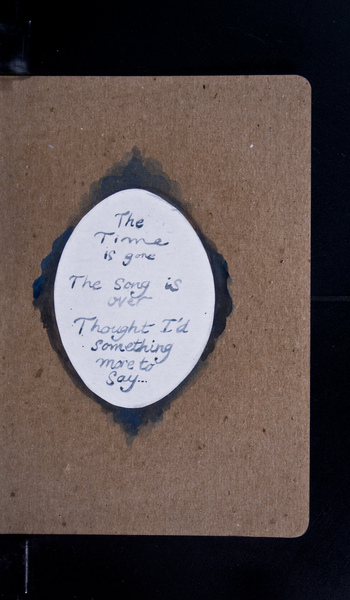 The
Time
is gone
The song is
over
Thought I'd
something
more to
Say...